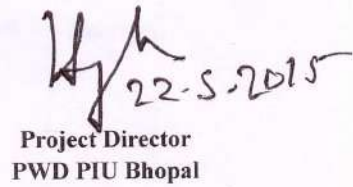 22.5.2015
Project Director
PWD PIU Bhopal